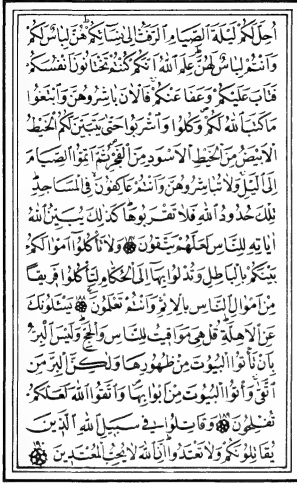 اُحِلَّ لَكُمْ لَيْلَةَ الصِّيَامِ الرَّفَثُ اِلٰى نِسَائِكُمْ هُنَّ لِبَاسٌ لَكُمْ
وَاَنْتُمْ لِبَاسٌ لَهُنَّ عَلِمَ اللّٰهُ اَنَّكُمْ كُنْتُمْ تَخْتَانُونَ اَنْفُسَكُمْ
فَتَابَ عَلَيْكُمْ وَعَفَا عَنْكُمْ فَالْاٰنَ بَاشِرُوهُنَّ وَابْتَغُوا
مَا كَتَبَ اللّٰهُ لَكُمْ وَكُلُوا وَاشْرَبُوا حَتّٰى يَتَبَيَّنَ لَكُمُ الْخَيْطُ
الْاَبْيَضُ مِنَ الْخَيْطِ الْاَسْوَدِ مِنَ الْفَجْرِ ثُمَّ اَتِمُّوا الصِّيَامَ
اِلَى الَّيْلِ وَلَا تُبَاشِرُوهُنَّ وَاَنْتُمْ عَاكِفُونَ فِي الْمَسَاجِدِ
تِلْكَ حُدُودُ اللّٰهِ فَلَا تَقْرَبُوهَا كَذٰلِكَ يُبَيِّنُ اللّٰهُ
اٰيَاتِهِ لِلنَّاسِ لَعَلَّهُمْ يَتَّقُونَ وَلَا تَأْكُلُوا اَمْوَالَكُمْ
بَيْنَكُمْ بِالْبَاطِلِ وَتُدْلُوا بِهَا اِلَى الْحُكَّامِ لِتَأْكُلُوا فَرِيقًا
مِنْ اَمْوَالِ النَّاسِ بِالْاِثْمِ وَاَنْتُمْ تَعْلَمُونَ يَسْـَٔلُونَكَ
عَنِ الْاَهِلَّةِ قُلْ هِيَ مَوَاقِيتُ لِلنَّاسِ وَالْحَجِّ وَلَيْسَ الْبِرُّ
بِاَنْ تَأْتُوا الْبُيُوتَ مِنْ ظُهُورِهَا وَلٰكِنَّ الْبِرَّ مَنِ
اتَّقٰى وَأْتُوا الْبُيُوتَ مِنْ اَبْوَابِهَا وَاتَّقُوا اللّٰهَ لَعَلَّكُمْ
تُفْلِحُونَ وَقَاتِلُوا فِي سَبِيلِ اللّٰهِ الَّذِينَ
يُقَاتِلُونَكُمْ وَلَا تَعْتَدُوا اِنَّ اللّٰهَ لَا يُحِبُّ الْمُعْتَدِينَ